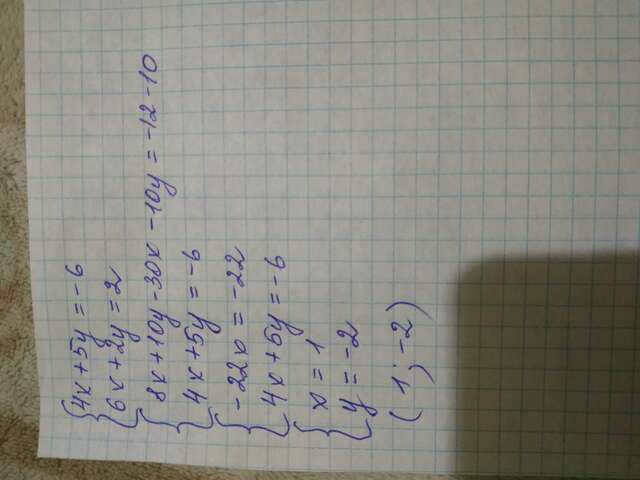 { 4x + 5y = -6
6x + 2y = 2
{ 8x + 10y - 30x - 10y = -12 - 10
4x + 5y = -6
{ -22x = -22
4x + 5y = -6
{ x = 1
y = -2
(1; -2)